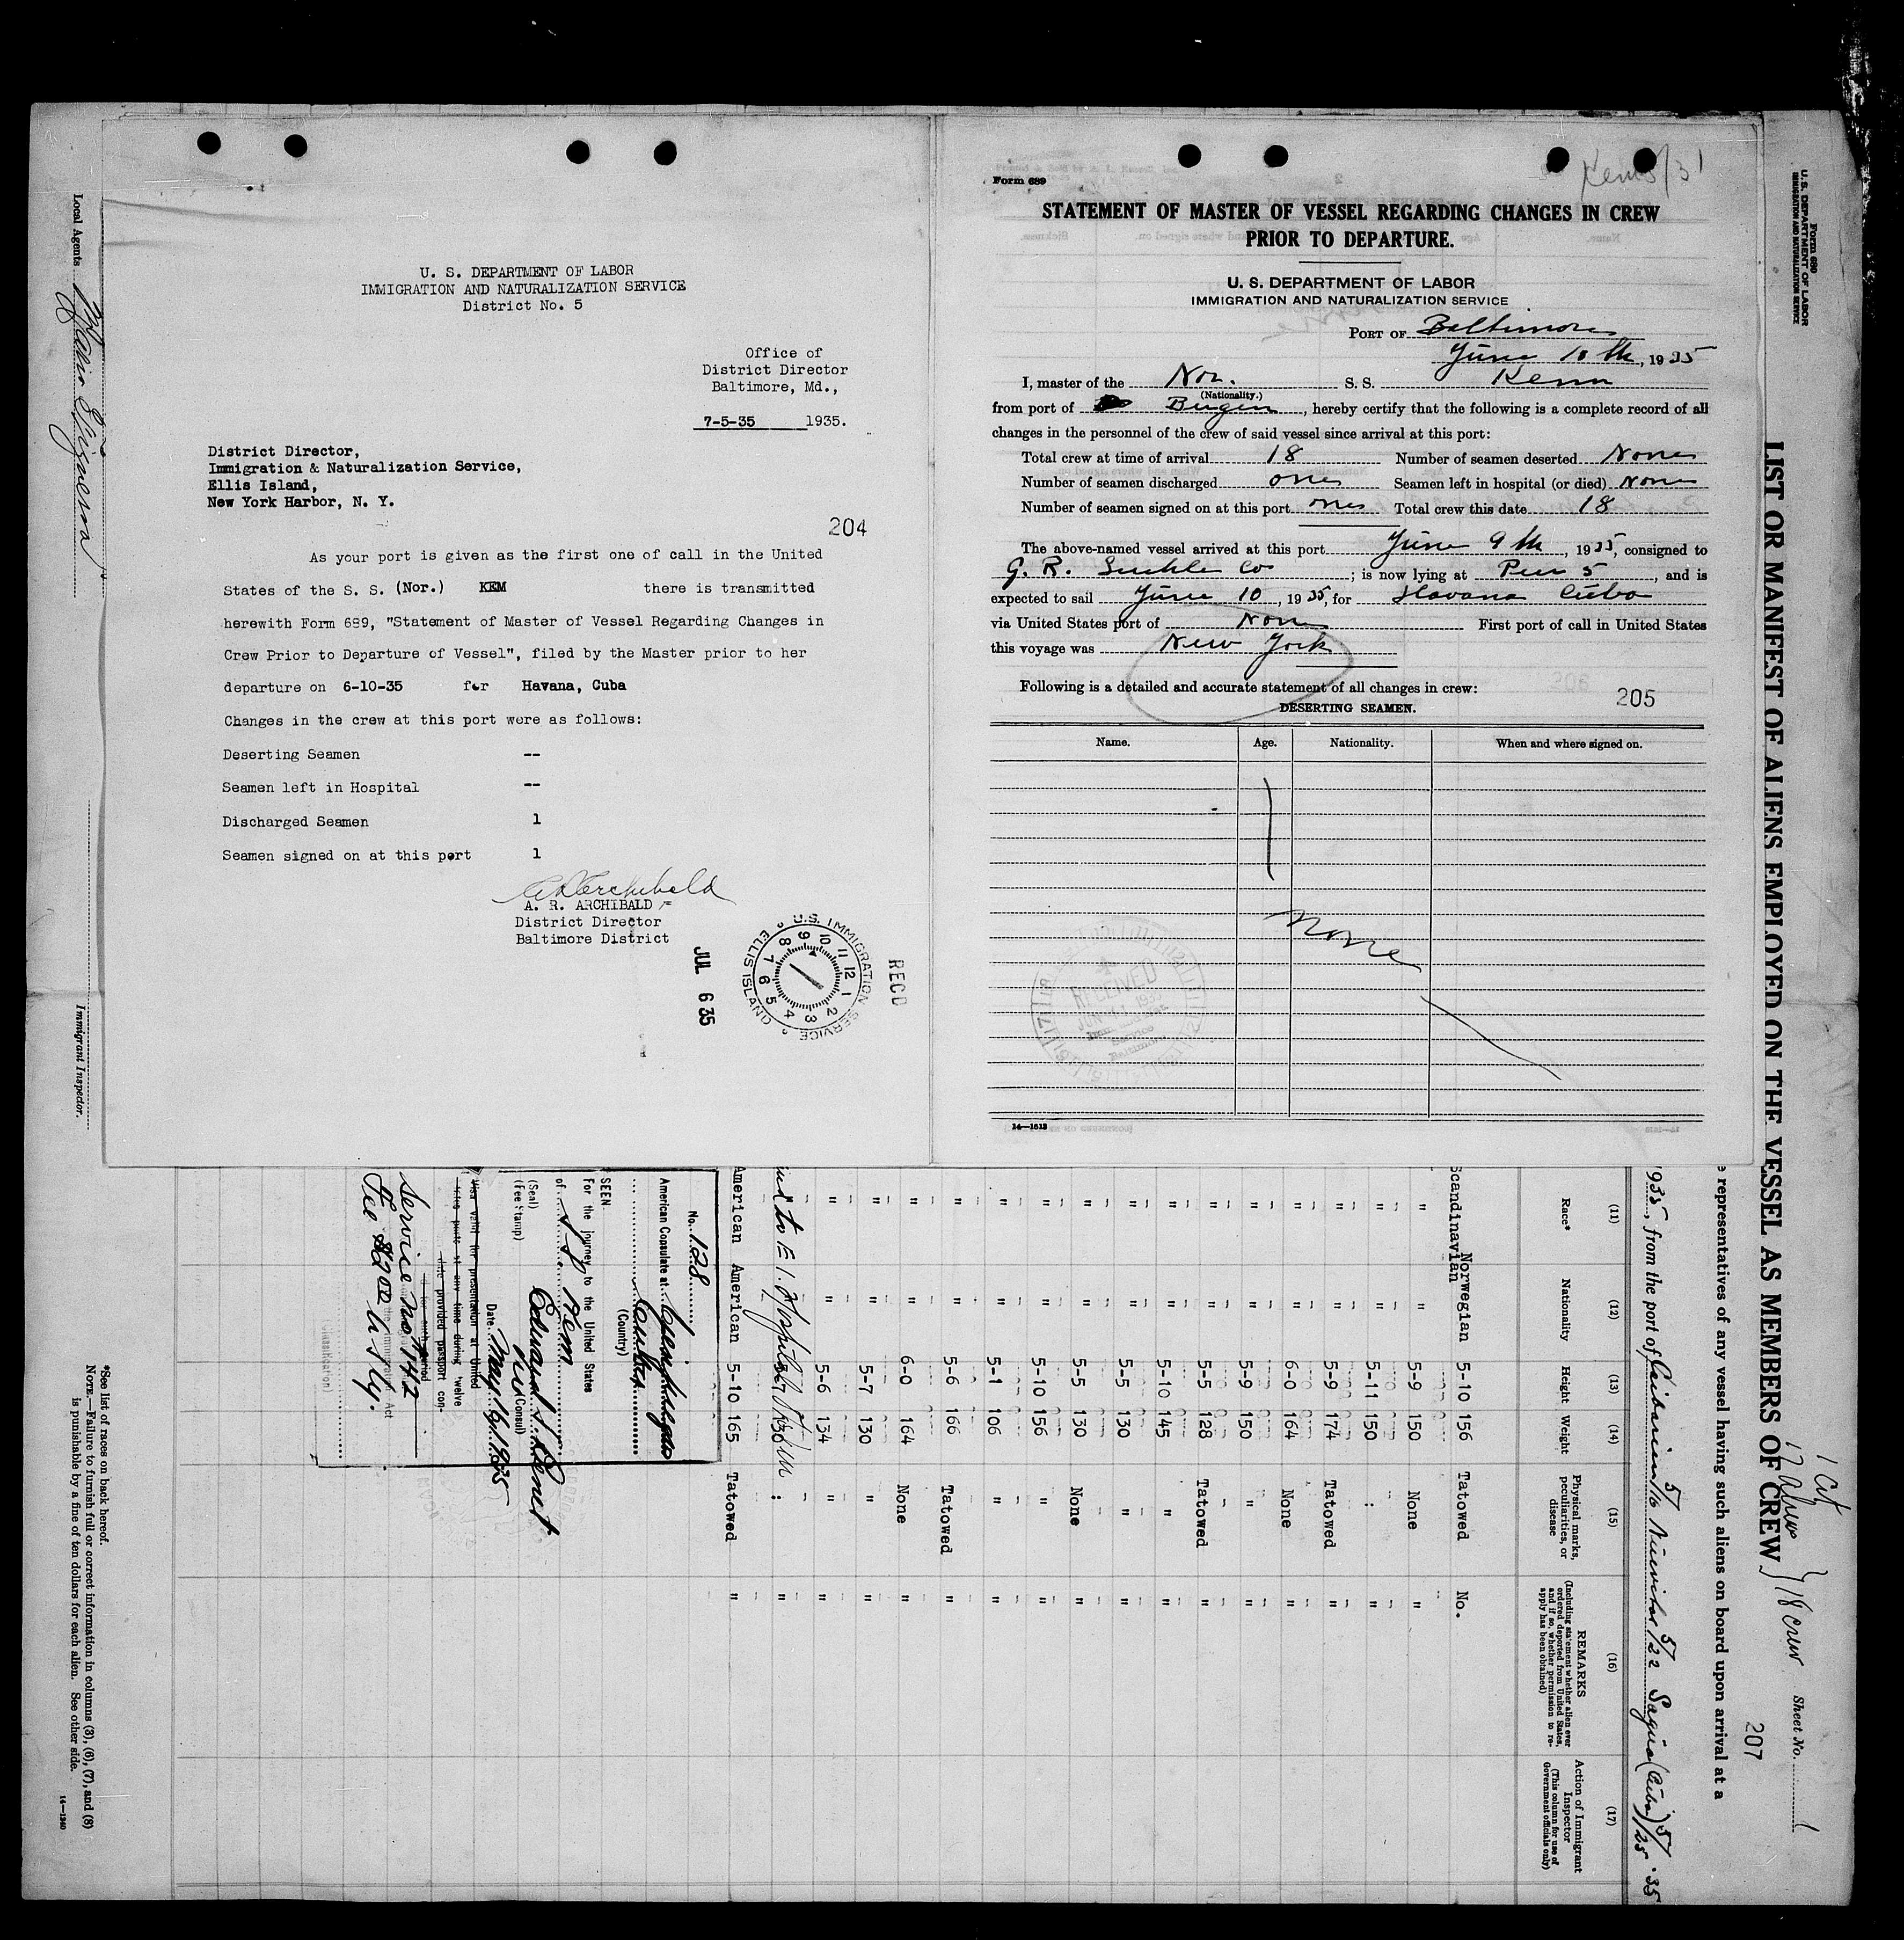 U. S. DEPARTMENT OF LABOR
IMMIGRATION AND NATURALIZATION SERVICE
District No. 5
Office of
District Director
Baltimore, Md.,
7-5-35 1935.
District Director,
Immigration & Naturalization Service,
Ellis Island,
New York Harbor, N. Y.
204
As your port is given as the first one of call in the United
States of the S. S. (Nor.) KEM there is transmitted
herewith Form 689, "Statement of Master of Vessel Regarding Changes in
Crew Prior to Departure of Vessel", filed by the Master prior to her
departure on 6-10-35 for Havana, Cuba
Changes in the crew at this port were as follows:
Deserting Seamen --
Seamen left in Hospital --
Discharged Seamen 1
Seamen signed on at this port 1
A. R. Archibald
A. R. ARCHIBALD
District Director
Baltimore District
JUL 6 35
U.S. IMMIGRATION SERVICE
ELLIS ISLAND
12 1 2 3 4 5 6 7 8 9 10 11
RECD
Form 689
STATEMENT OF MASTER OF VESSEL REGARDING CHANGES IN CREW
PRIOR TO DEPARTURE.
U. S. DEPARTMENT OF LABOR
IMMIGRATION AND NATURALIZATION SERVICE
PORT OF Baltimore
June 10th, 1935
I, master of the Nor. S. S. Kem
(Nationality.)
from port of Bergen, hereby certify that the following is a complete record of all
changes in the personnel of the crew of said vessel since arrival at this port:
Total crew at time of arrival 18 Number of seamen deserted None
Number of seamen discharged one Seamen left in hospital (or died) None
Number of seamen signed on at this port one Total crew this date 18
The above-named vessel arrived at this port June 9th, 1935, consigned to
G. R. Co; is now lying at Pier 5, and is
expected to sail June 10, 1935, for Havana Cuba
via United States port of None First port of call in United States
this voyage was New York
Following is a detailed and accurate statement of all changes in crew:
205
DESERTING SEAMEN.
Name. Age. Nationality. When and where signed on.
None
RECEIVED
Baltimore
14—1613
Local Agents
Immigrant Inspector.
Form 680
U. S. DEPARTMENT OF LABOR
IMMIGRATION AND NATURALIZATION SERVICE
LIST OR MANIFEST OF ALIENS EMPLOYED ON THE VESSEL AS MEMBERS OF CREW
18 crew
Sheet No. 1
207
representatives of any vessel having such aliens on board upon arrival at a
1935, from the port of Caibarien 5/16 Nuevitas 5/22 Sagua (Cuba) 5/25 .35
(11) (12) (13) (14) (15) (16) (17)
Race* Nationality Height Weight Physical marks, peculiarities, or disease
REMARKS
(Including statement whether alien ever ordered deported from United States, and if so, whether permission to reapply has been obtained)
Action of Immigrant Inspector
(This column for use of Government officials only)
Scandinavian Norwegian 5-10 156 Tatowed No.
" " 5-9 150 None "
" " 5-11 150 : "
" " 5-9 174 Tatowed "
" " 6-0 164 None "
" " 5-9 150 " "
" " 5-5 128 Tatowed "
" " 5-10 145 " "
" " 5-5 130 " "
" " 5-5 130 None "
" " 5-10 156 " "
" " 5-1 106 " "
" " 5-6 166 Tatowed "
" " 6-0 164 None "
" " 5-7 130 " "
" " 5-6 134 " "
American American 5-10 165 Tatowed "
No. 128
American Consulate at Cienfuegos
Cuba
(Country)
SEEN
For the journey to the United States
of SS Kem
(Seal)
(Fee Stamp)
Vice (Consul)
Date May 16, 1935
Service No 142
Fee $2.00
*See list of races on back hereof.
NOTE.—Failure to furnish full or correct information in columns (3), (6), (7), and (8)
is punishable by a fine of ten dollars for each alien. See other side.
14—1240